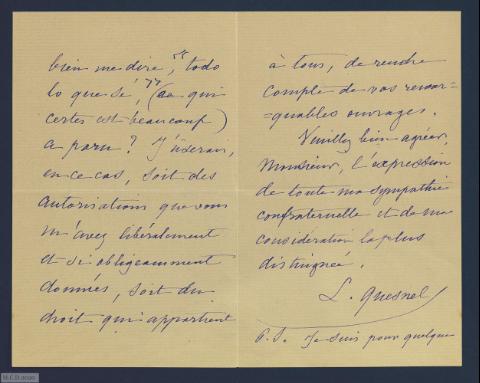 bien me dire, "todo
lo que sé", (ce qui
certes est beaucoup)
a paru? J'userai,
en ce cas, soit des
autorisations que vous
m'avez libéralement
et si obligeamment
données, soit du
droit qui appartient
à tous, de rendre
compte de vos remar-
=quables ouvrages.
Veuillez bien agréer,
Monsieur, l'expression
de toute ma sympathie
confraternelle et de ma
considération la plus
distinguée.
L. Quesnel
P.S. Je suis pour quelque